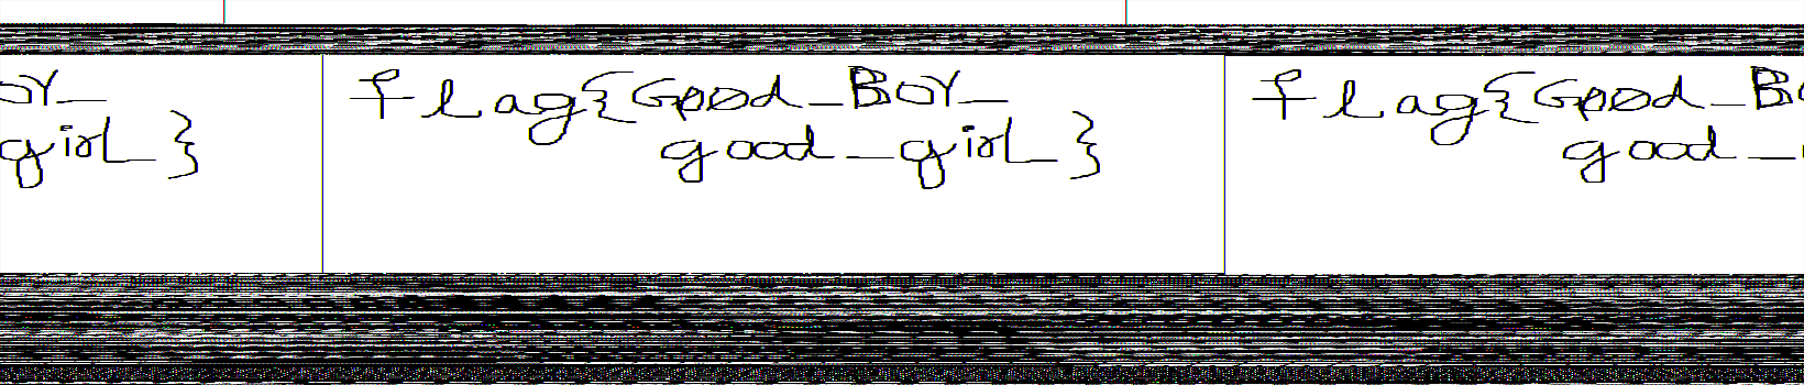 OY_
girL_}
fLag{Good_BOY_
good_girL_}
fLag{Good_B
good_